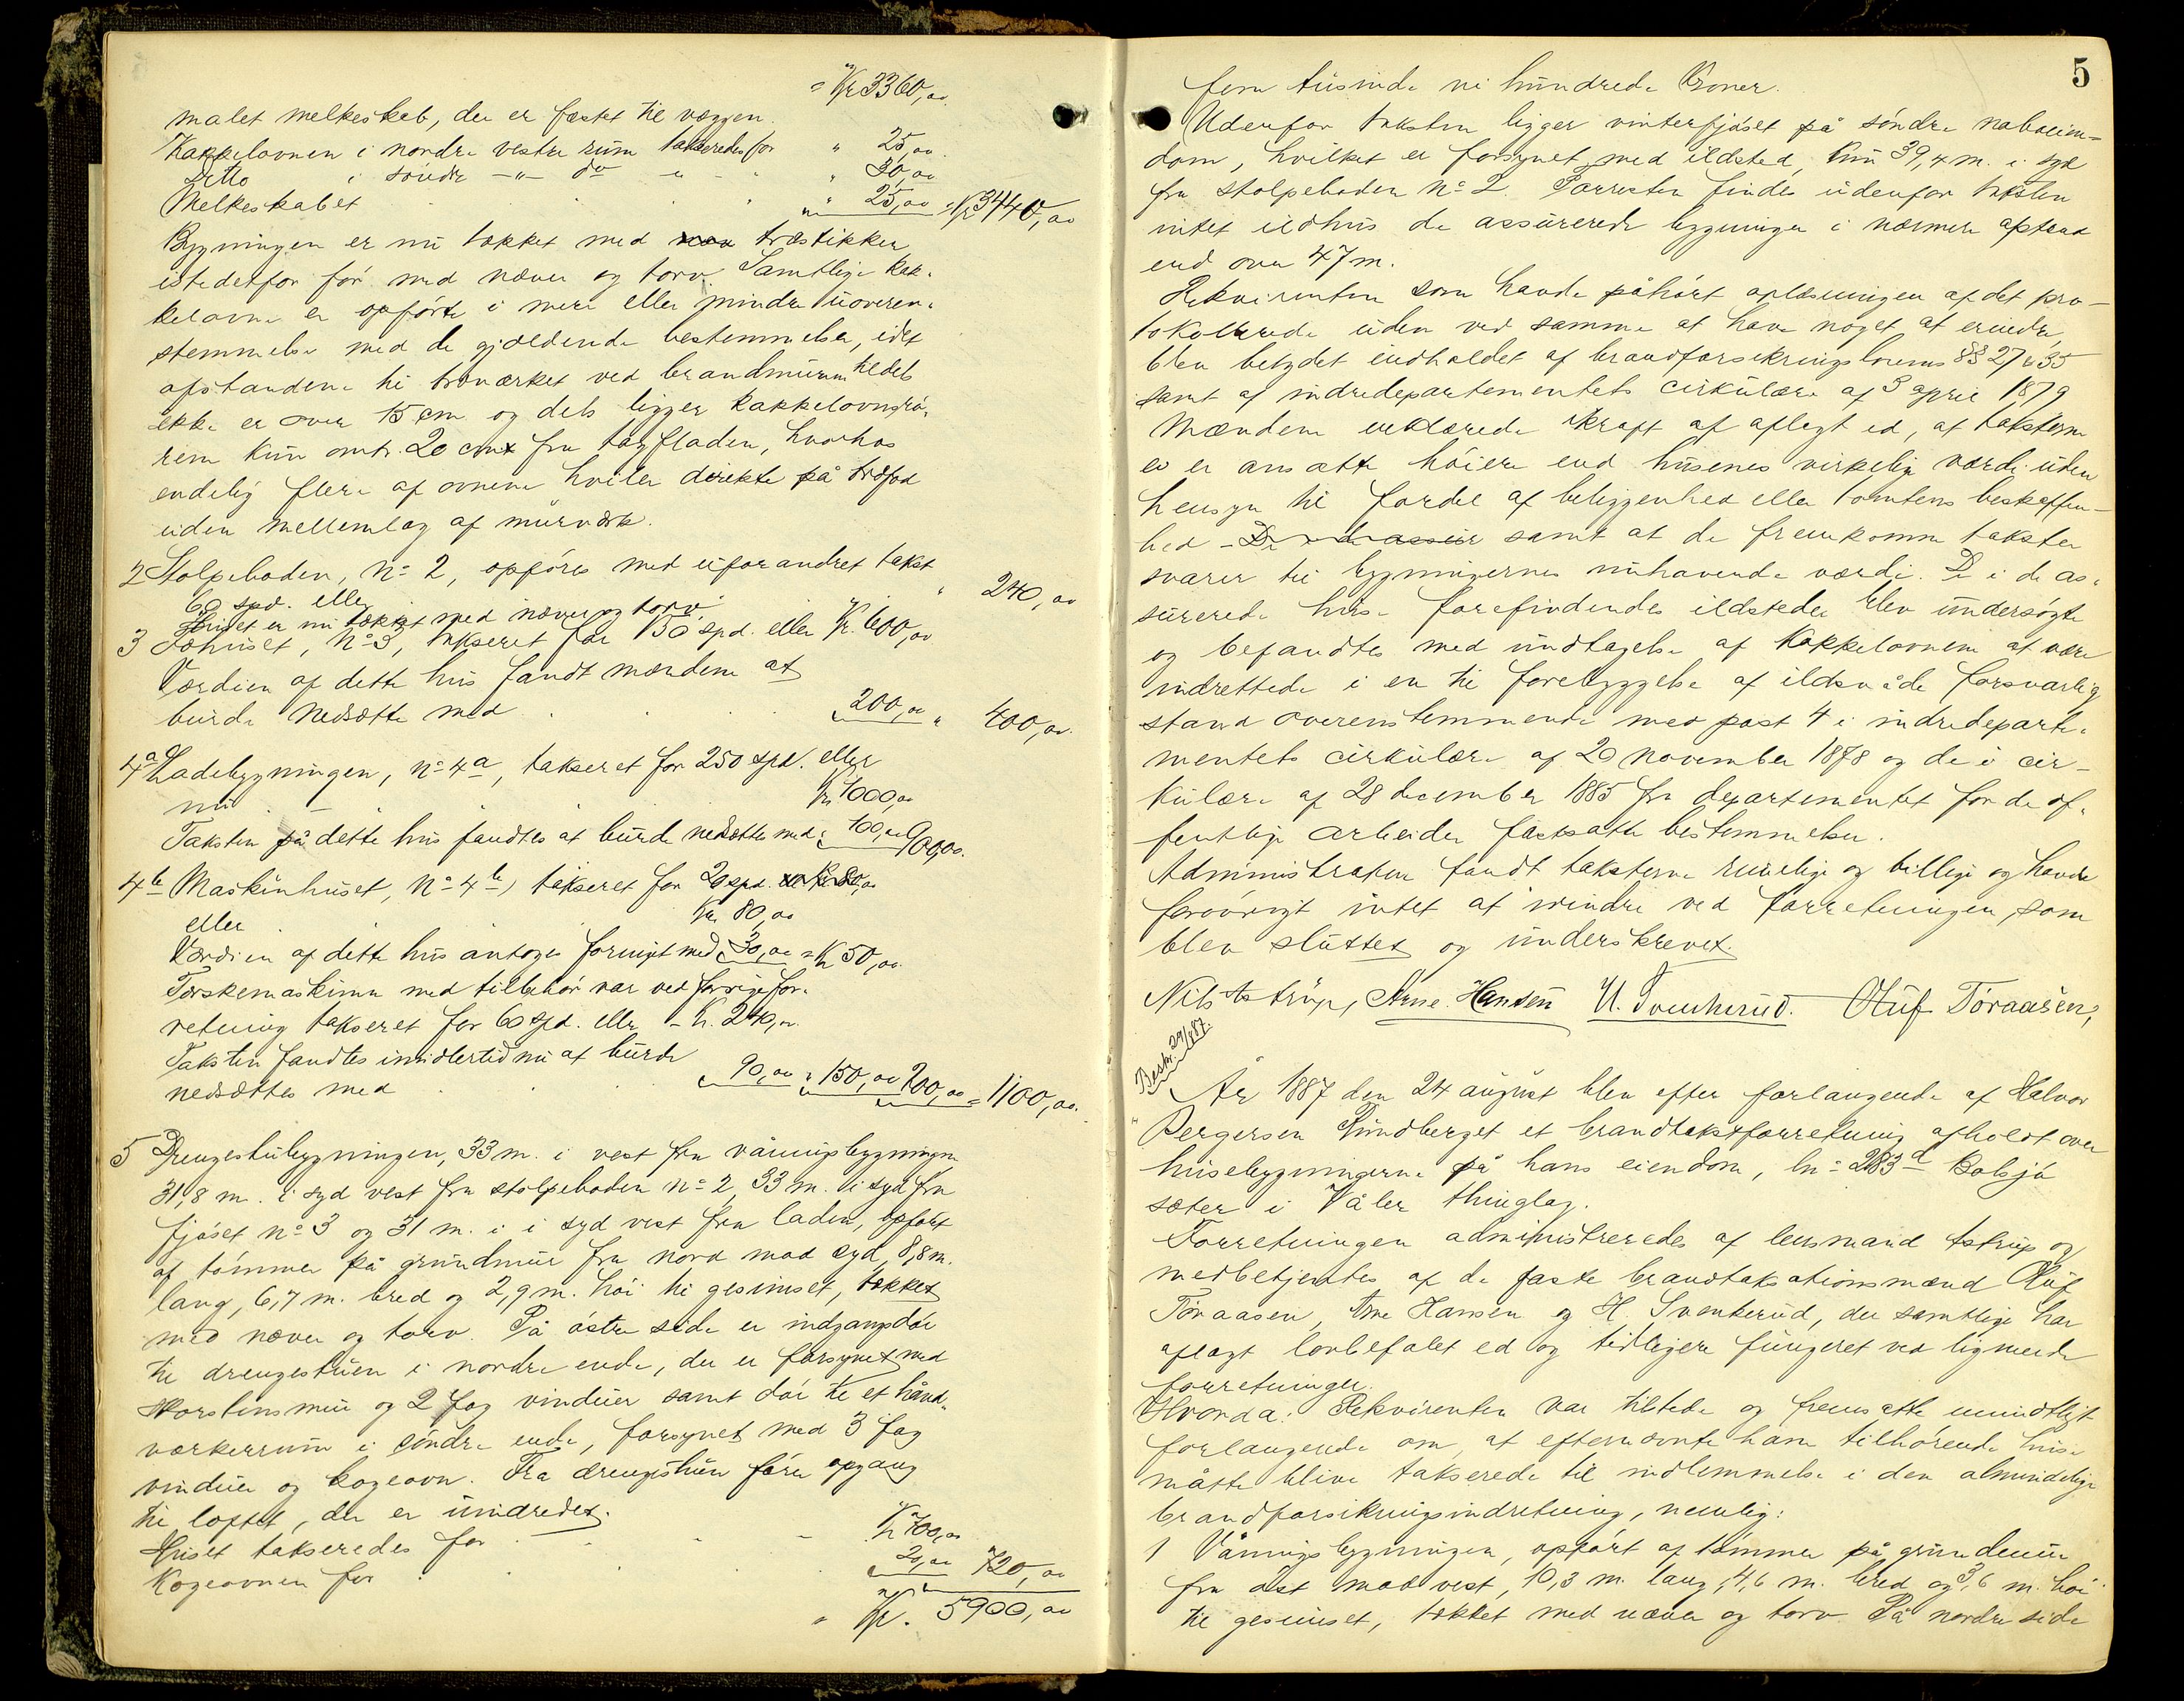 = Kr 3360,00
malet melkeskab, der er fæstet til væggen.
Kakkelovnen i nordre vestre rum takseredes for " 25,00
Ditto i søndre -"- do " - " 30,00
Melkeskabet " 25,00 = Kr 3440,00
Bygningen er nu tækket med træstikker
istedetfor før med næver og torv. Samtlige kak-
kelovne er opførte i mere eller mindre uoveren-
stemmelse med de gjældende bestemmelser, idet
afstandene til træværket ved brandmuren tildels
ikke er over 15 cm og dels ligger kakkelovnsrø-
rene kun omtr. 20 cm fra tagfladen, hvorhos
endelig flere af ovnene hviler direkte på træfod
uden mellemlag af murværk.
2 Stolpeboden, No 2, opføres med uforandret takst
60 spd. eller " 240,00
Huset er nu tækket med næver og torv.
3 Fæhuset, No 3, takseret for 150 spd. eller Kr. 600,00
Værdien af dette hus fandt mændene at
burde nedsætte med 200,00 " 400,00
4a Ladebygningen, no 4a, takseret for 250 spd. eller
nu Kr 1000,00
Taksten på dette hus fandtes at burde nedsættes med 100,00 900,00
4b Maskinhuset, No 4b, takseret for 20 spd.
eller Kr 80,00
Værdien af dette hus antoges forringet med 30,00 = Kr 50,00
Tærskemaskinen med tilbehør var ved forrige for-
retning takseret for 60 spd. eller - Kr. 240,00
Taksten fandtes imidlertid nu at burde
nedsættes med 90,00 = 150,00 200,00 = 1100,00
5 Drengestubygningen, 33 m. i vest fra våningsbygningen
31,8 m. i syd vest fra stolpeboden no 2, 33 m. i syd fra
fjøset no 3 og 31 m. i i syd vest fra laden, opført
af tømmer på grundmur fra nord mod syd, 8,8 m.
lang, 6,7 m. bred og 2,9 m. høi til gesimset, tækket
med næver og torv. På østre side er indgangsdør
til drengestuen i nordre ende, der er forsynet med
skorstensmur og 2 fag vinduer samt dør til et hånd-
værkerrum i søndre ende, forsynet med 3 fag
vinduer og kogeovn. Fra drengestuen fører opgang
til loftet, der er uindredet.
Huset takseredes for Kr 700,00
Kogeovnen for 20,00 720,00
" Kr. 5900,00
5
fem tusinde ni hundrede Kroner.
Udenfor taksten ligger vinterfjøset på søndre naboeien-
dom, hvilket er forsynet med ildsted, kun 39,4 m. i syd
fra stolpeboden No 2. Forresten findes udenfor taksten
intet ildhus de assurerede bygninger i nærmere afstand
end over 47 m.
Rekvirenten som havde påhørt oplæsningen af det pro-
tokollerede uden ved samme at have noget at erindre,
blev betydet indholdet af brandforsikringslovens §§ 27 & 35
samt af indredepartementets cirkulære af 3 april 1879
Mændene erklærede i kraft af aflagt ed, at taksterne
ei er ansatte høiere end husenes virkelige værdi uden
hensyn til fordel af beliggenhed eller tomtens beskaffen-
hed - samt at de fremkomne takster
svarer til bygningernes nuhavende værdi. De i de as-
surerede huse forefindendes ildsteder blev undersøgte
og befandtes med undtagelse af kakkelovnene at være
indrettede i en til forebyggelse af ildsvåde forsvarlig
stand overensstemmende med post 4 i indredeparte-
mentets cirkulære af 20 november 1878 og de i cir-
kulære af 28 december 1885 fra departementet for de of-
fentlige arbeider fastsatte bestemmelser.
Administrator fandt taksterne rimelige og billige og havde
forøvrigt intet at erindre ved forretningen, som
blev sluttet og underskrevet.
Nils Astrup, Arne Hansen H. Svenkerud. Oluf Toraasen,
Beskr. 29/8 87.
År 1887 den 24 august blev efter forlangende af Halvor
Bergersen Rundberget et brandtakstforretning afholdt over
husebygningerne på hans eiendom, ln: 283d Bolsjø
sæter i Våler thinglag.
Forretningen administreredes af lensmand Astrup og
medbetjentes af de faste brandtakstionsmænd Oluf
Toraasen, Arne Hansen og H. Svenkerud, der samtlige har
aflagt lovbefalet ed og tidligere fungeret ved lignende
forretninger.
Hvorda: Rekvirenten var tilstede og fremsatte mundtligt
forlangende om, at efternævnte ham tilhørende huse
måtte blive takserede til indlemmelse i den almindelige
brandforsikringsindretning, nemlig:
1 Våningsbygningen, opført af tømmer på grundmur
fra øst mod vest, 10,3 m. lang, 4,6 m. bred og 3,6 m. høi
til gesimset, tækket med næver og torv. På nordre side